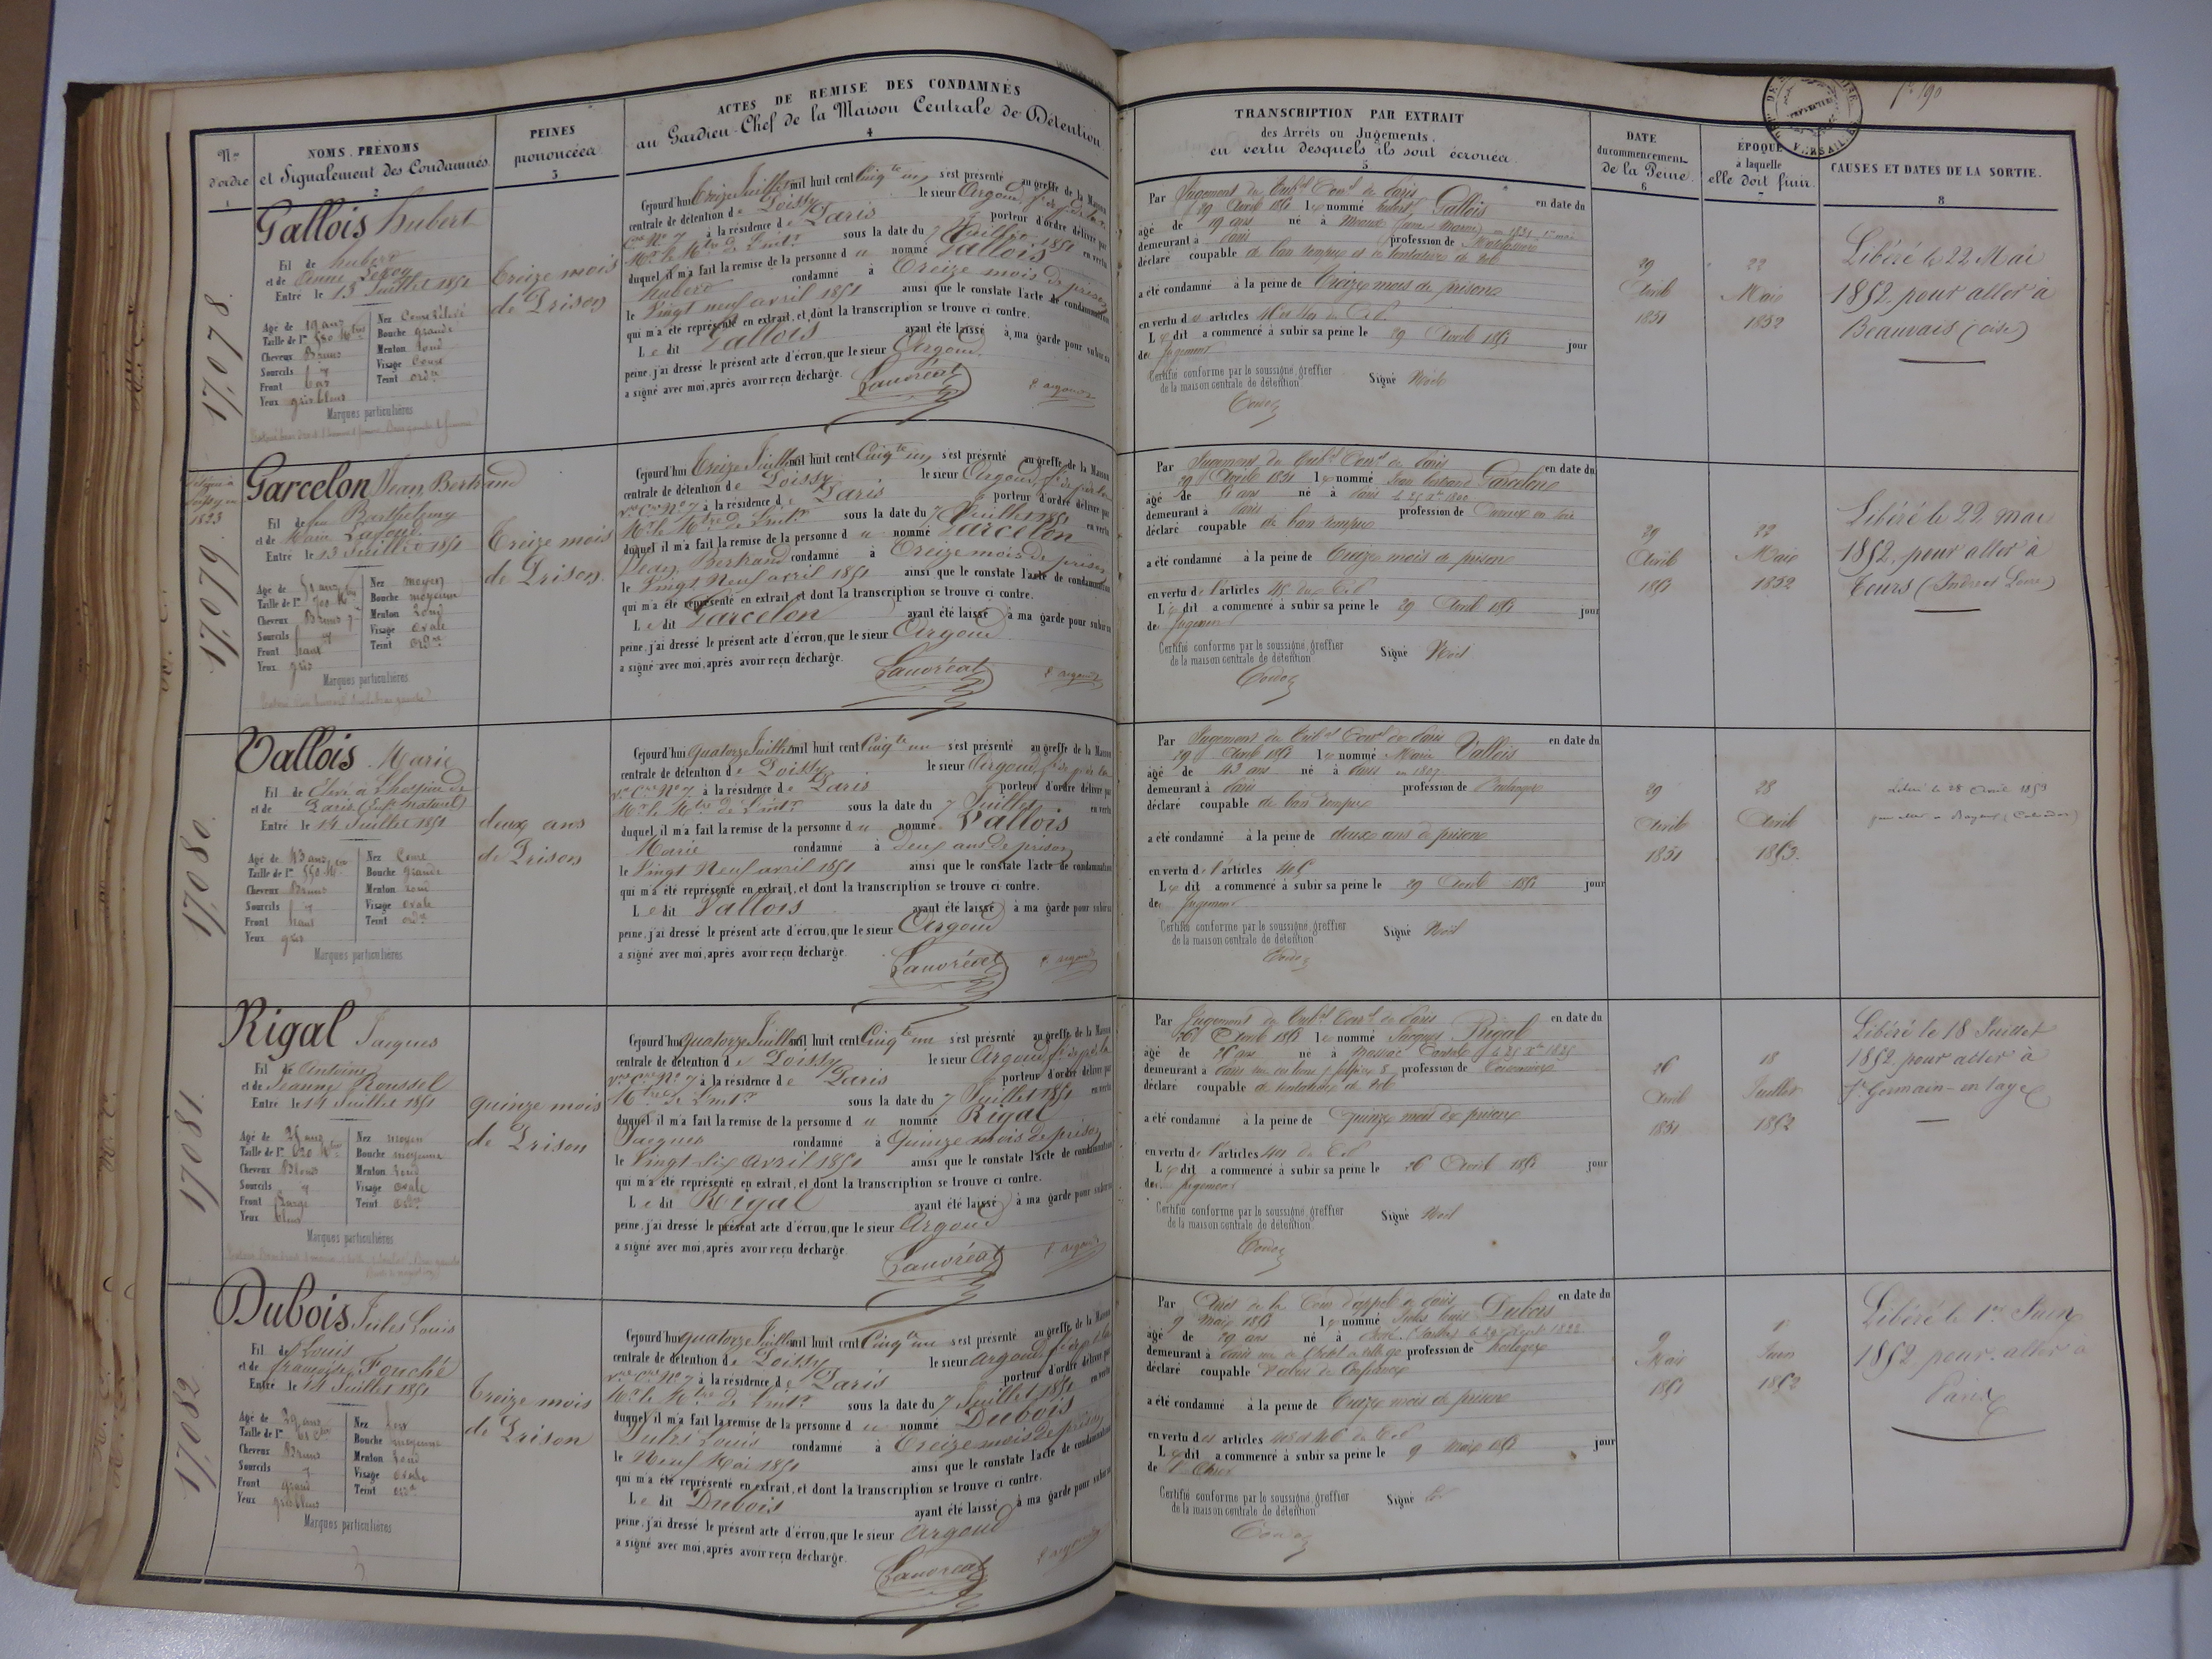 N.os
d'ordre
1
NOMS. PRÉNOMS
et Signalement des Condamnés
2
PEINES
prononcées
3
ACTES DE REMISE DES CONDAMNÉS
au Gardien-Chef de la Maison Centrale de Détention
4
17078
Gallois hubert
Fil de hubert
et de Anne
Entré le 13 Juillet 1851
Agé de 19 ans
Taille de 1m 580
Cheveux Bruns
Sourcils
Front bas
Yeux gris bleus
Nez
Bouche grande
Menton rond
Visage
Teint ord.re
Marques particulières
Treize mois
de Prison
Cejourd'hui Treize Juillet mil huit cent Cinq.te un s'est présenté au greffe de la Maison
centrale de détention de Poissy le sieur Argoud
à la résidence de Paris porteur d'ordre délivré par
Mr. le M.tre de l'int.r sous la date du 7 Juillet 1851 en vertu
duquel il m'a fait la remise de la personne d u nommé Gallois
hubert condamné à Treize mois de prison
le Vingt neuf avril 1851 ainsi que le constate l'acte de condamnation
qui m'a été représenté en extrait, et dont la transcription se trouve ci contre.
L e dit Gallois ayant été laissé à ma garde pour subir sa
peine, j'ai dressé le présent acte d'écrou, que le sieur Argoud
a signé avec moi, après avoir reçu décharge.
Lauvréat
argoud
17079
1823
Garcelon Jean Bertrand
Fil de feu Barthélemy
et de Marie
Entré le 13 Juillet 1851
Agé de 51 ans
Taille de 1m 700
Cheveux Bruns
Sourcils
Front haut
Yeux gris
Nez moyen
Bouche moyenne
Menton rond
Visage ovale
Teint ord.re
Marques particulières
Treize mois
de Prison
Cejourd'hui Treize Juillet mil huit cent Cinq.te un s'est présenté au greffe de la Maison
centrale de détention de Poissy le sieur Argoud
à la résidence de Paris porteur d'ordre délivré par
Mr. le M.tre de l'int.r sous la date du 7 Juillet 1851 en vertu
duquel il m'a fait la remise de la personne d u nommé Garcelon
Jean Bertrand condamné à Treize mois de prison
le Vingt Neuf avril 1851 ainsi que le constate l'acte de condamnation
qui m'a été représenté en extrait, et dont la transcription se trouve ci contre.
L e dit Garcelon ayant été laissé à ma garde pour subir sa
peine, j'ai dressé le présent acte d'écrou, que le sieur Argoud
a signé avec moi, après avoir reçu décharge.
Lauvréat
argoud
17080
Vallois Marie
Fil de Elevé à l'hospice de
et de Paris (Enf.t naturel)
Entré le 14 Juillet 1851
Agé de 43 ans
Taille de 1m 550
Cheveux Bruns
Sourcils
Front haut
Yeux gris
Nez Court
Bouche grande
Menton rond
Visage ovale
Teint ord.re
Marques particulières
deux ans
de Prison
Cejourd'hui quatorze Juillet mil huit cent Cinq.te un s'est présenté au greffe de la Maison
centrale de détention de Poissy le sieur Argoud
à la résidence de Paris porteur d'ordre délivré par
Mr. le M.tre de l'int.r sous la date du 7 Juillet en vertu
duquel il m'a fait la remise de la personne d u nommé Vallois
Marie condamné à deux ans de prison
le Vingt Neuf avril 1851 ainsi que le constate l'acte de condamnation
qui m'a été représenté en extrait, et dont la transcription se trouve ci contre.
L e dit Vallois ayant été laissé à ma garde pour subir sa
peine, j'ai dressé le présent acte d'écrou, que le sieur Argoud
a signé avec moi, après avoir reçu décharge.
Lauvréat
argoud
17081
Rigal Jacques
Fil de Antoine
et de Jeanne Roussel
Entré le 14 Juillet 1851
Agé de 25 ans
Taille de 1m 620
Cheveux Blonds
Sourcils
Front large
Yeux bleus
Nez moyen
Bouche moyenne
Menton rond
Visage ovale
Teint ord.re
Marques particulières
quinze mois
de Prison
Cejourd'hui quatorze Juillet mil huit cent Cinq.te un s'est présenté au greffe de la Maison
centrale de détention de Poissy le sieur Argoud
à la résidence de Paris porteur d'ordre délivré par
M.tre de l'int.r sous la date du 7 Juillet 1851 en vertu
duquel il m'a fait la remise de la personne d u nommé Rigal
Jacques condamné à Quinze mois de prison
le Vingt Six avril 1851 ainsi que le constate l'acte de condamnation
qui m'a été représenté en extrait, et dont la transcription se trouve ci contre.
L e dit Rigal ayant été laissé à ma garde pour subir sa
peine, j'ai dressé le présent acte d'écrou, que le sieur Argoud
a signé avec moi, après avoir reçu décharge.
Lauvréat
argoud
17082
Dubois Jules Louis
Fil de Louis
et de françoise Fouché
Entré le 14 Juillet 1851
Agé de 29 ans
Taille de 1m
Cheveux Bruns
Sourcils
Front grand
Yeux gris bleus
Nez
Bouche moyenne
Menton rond
Visage ovale
Teint ord.re
Marques particulières
Treize mois
de Prison
Cejourd'hui quatorze Juillet mil huit cent Cinq.te un s'est présenté au greffe de la Maison
centrale de détention de Poissy le sieur argoud
à la résidence de Paris porteur d'ordre délivré par
Mr. le M.tre de l'int.r sous la date du 7 Juillet 1851 en vertu
duquel il m'a fait la remise de la personne d u nommé Dubois
Jules Louis condamné à Treize mois de prison
le Neuf Mai 1851 ainsi que le constate l'acte de condamnation
qui m'a été représenté en extrait, et dont la transcription se trouve ci contre.
L e dit Dubois ayant été laissé à ma garde pour subir sa
peine, j'ai dressé le présent acte d'écrou, que le sieur Argoud
a signé avec moi, après avoir reçu décharge.
Lauvréat
argoud
TRANSCRIPTION PAR EXTRAIT
des Arrêts ou Jugements,
en vertu desquels ils sont écroués
5
DATE
du commencement
de la Peine.
6
ÉPOQUE
à laquelle
elle doit finir.
7
CAUSES ET DATES DE LA SORTIE.
8
VERSAILLES
f° 190
Par Jugement du Trib.al Corr.el de Paris en date du
29 Avril 1851 le nommé hubert Gallois
âgé de 19 ans né à Meaux (Seine et Marne)
demeurant à Paris profession de
déclaré coupable de ban rompu et de tentative de vol
a été condamné à la peine de treize mois de prison
en vertu des articles
Le dit a commencé à subir sa peine le 29 Avril 1851 jour
de Jugement
Certifié conforme par le soussigné, greffier
de la maison centrale de détention
Signé Noël
29
Avril
1851
22
Mai
1852
Libéré le 22 Mai
1852, pour aller à
Beauvais (oise)
Par Jugement du Trib.al Corr.el de Paris en date du
29 Avril 1851 le nommé Jean bertrand Garcelon
âgé de 51 ans né à Paris
demeurant à Paris profession de
déclaré coupable de ban rompu
a été condamné à la peine de treize mois de prison
en vertu de l'articles 45 du
Le dit a commencé à subir sa peine le 29 Avril 1851 jour
de Jugement
Certifié conforme par le soussigné, greffier
de la maison centrale de détention
Signé Noël
29
Avril
1851
22
Mai
1852
Libéré le 22 mai
1852, pour aller à
Tours (Indre et Loire)
Par Jugement du Trib.al Corr.el de Paris en date du
29 Avril 1851 le nommé Marie Vallois
âgé de 43 ans né à Paris en 1807
demeurant à Paris profession de Boulanger
déclaré coupable de ban rompu
a été condamné à la peine de deux ans de prison
en vertu de l'articles
Le dit a commencé à subir sa peine le 29 Avril 1851 jour
de Jugement
Certifié conforme par le soussigné, greffier
de la maison centrale de détention
Signé Noël
29
Avril
1851
28
Avril
1853.
Libéré le 28 Avril 1853
pour aller à Bayeux (Calvados)
Par Jugement du Trib.al Corr.el de Paris en date du
26 Avril 1851 le nommé Jacques Rigal
âgé de 26 ans né à Massiac Cantal
demeurant à Paris profession de
déclaré coupable de tentative de vol
a été condamné à la peine de quinze mois de prison
en vertu de l'articles 401 du
Le dit a commencé à subir sa peine le 26 Avril 1851 jour
de Jugement
Certifié conforme par le soussigné, greffier
de la maison centrale de détention
Signé Noël
26
Avril
1851
18
Juillet
1852
Libéré le 18 Juillet
1852, pour aller à
St. Germain-en-laye
Par Arrêt de la Cour d'appel de Paris en date du
9 Mai 1851 le nommé Jules Louis Dubois
âgé de 29 ans né à
demeurant à Paris profession de horloger
déclaré coupable d'abus de Confiance
a été condamné à la peine de treize mois de prison
en vertu des articles 408 et 406 du
Le dit a commencé à subir sa peine le 9 Mai 1851 jour
de l'Arrêt
Certifié conforme par le soussigné, greffier
de la maison centrale de détention
Signé
9
Mai
1851
1er
Juin
1852
Libéré le 1er Juin
1852 pour aller à
Paris